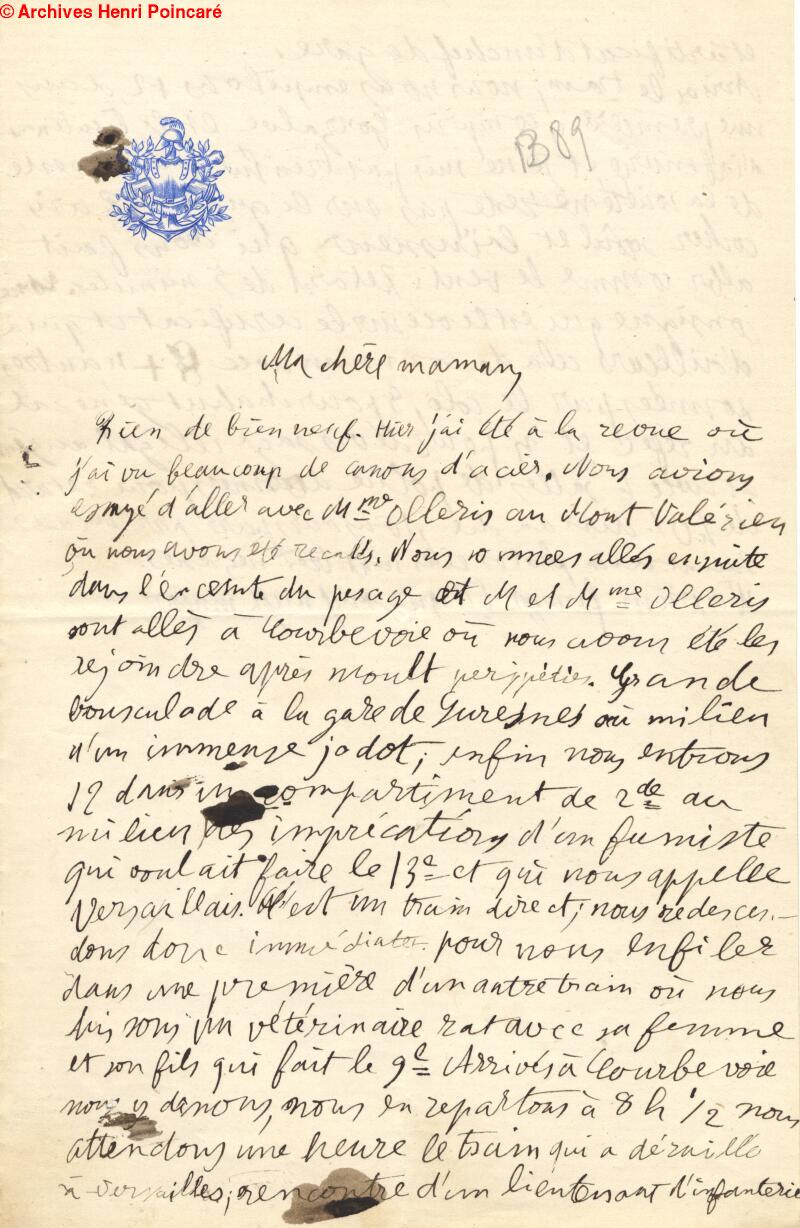 © Archives Henri Poincaré
B 89
Ma chère maman,
Rien de bien neuf. Hier j'ai été à la revue où
j'ai vu beaucoup de canons d'acier. Nous avions
essayé d'aller avec Mme Olleris au Mont Valérien
où nous avons été recalés. Nous sommes allés ensuite
dans l'enceinte du pesage et M et Mme Olleris
sont allés à Courbevoie où nous avons été les
rejoindre après moult péripéties. Grande
bousculade à la gare de Suresnes au milieu
d'un immense jodot; enfin nous entrons
12 dans un compartiment de 2de au
milieu des imprécations d'un fumiste
qui voulait faire le 13e et qui nous appelle
Versaillais. C'est un train direct; nous redescen-
dons donc immédiatet pour nous enfiler
dans une première d'un autre train où nous
hissons un vétérinaire rat avec sa femme
et son fils qui fait le 9e Arrivés à Courbevoie
nous y dînons, nous en repartons à 8 h 1/2 nous
attendons une heure le train qui a déraillé
à Versailles; rencontre d'un lieutenant d'infanterie